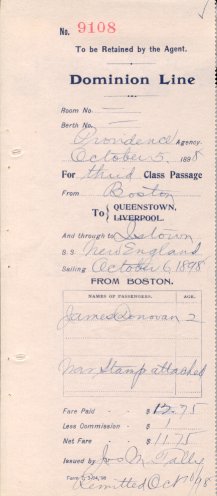 No. 9108
To be Retained by the Agent.
Dominion Line
Room No.
Berth No.
Providence Agency.
October 5, 1898
For third Class Passage
From Boston
To { QUEENSTOWN,
LIVERPOOL.
And through to Qstown
S.S. New England
Sailing October 6 1898
FROM BOSTON.
NAMES OF PASSENGERS. AGE.
James Donovan 2
War Stamp attached
Fare Paid - $ 12.75
Less Commission - $ 1
Net Fare - $ 11.75
Issued by Jos M Tally
Remitted Oct 10/98